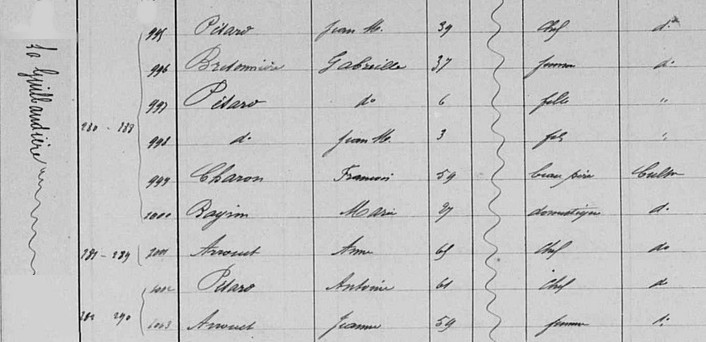 La Guillaudière
995 Pitaro Jean M. 39 chef do
996 Gabrielle 37 femme do
997 Pitaro do 6 fille "
280 - 288
998 do Jean M. 3 fils "
999 Charon Francois 59 beau père Cultr
1000 Marie 27 domestique do
281 - 289 Arrouet Anne 65 chef do
1002 Pitaro Antoine 61 chef do
282 290 1003 Arrouet Jeanne 59 femme do